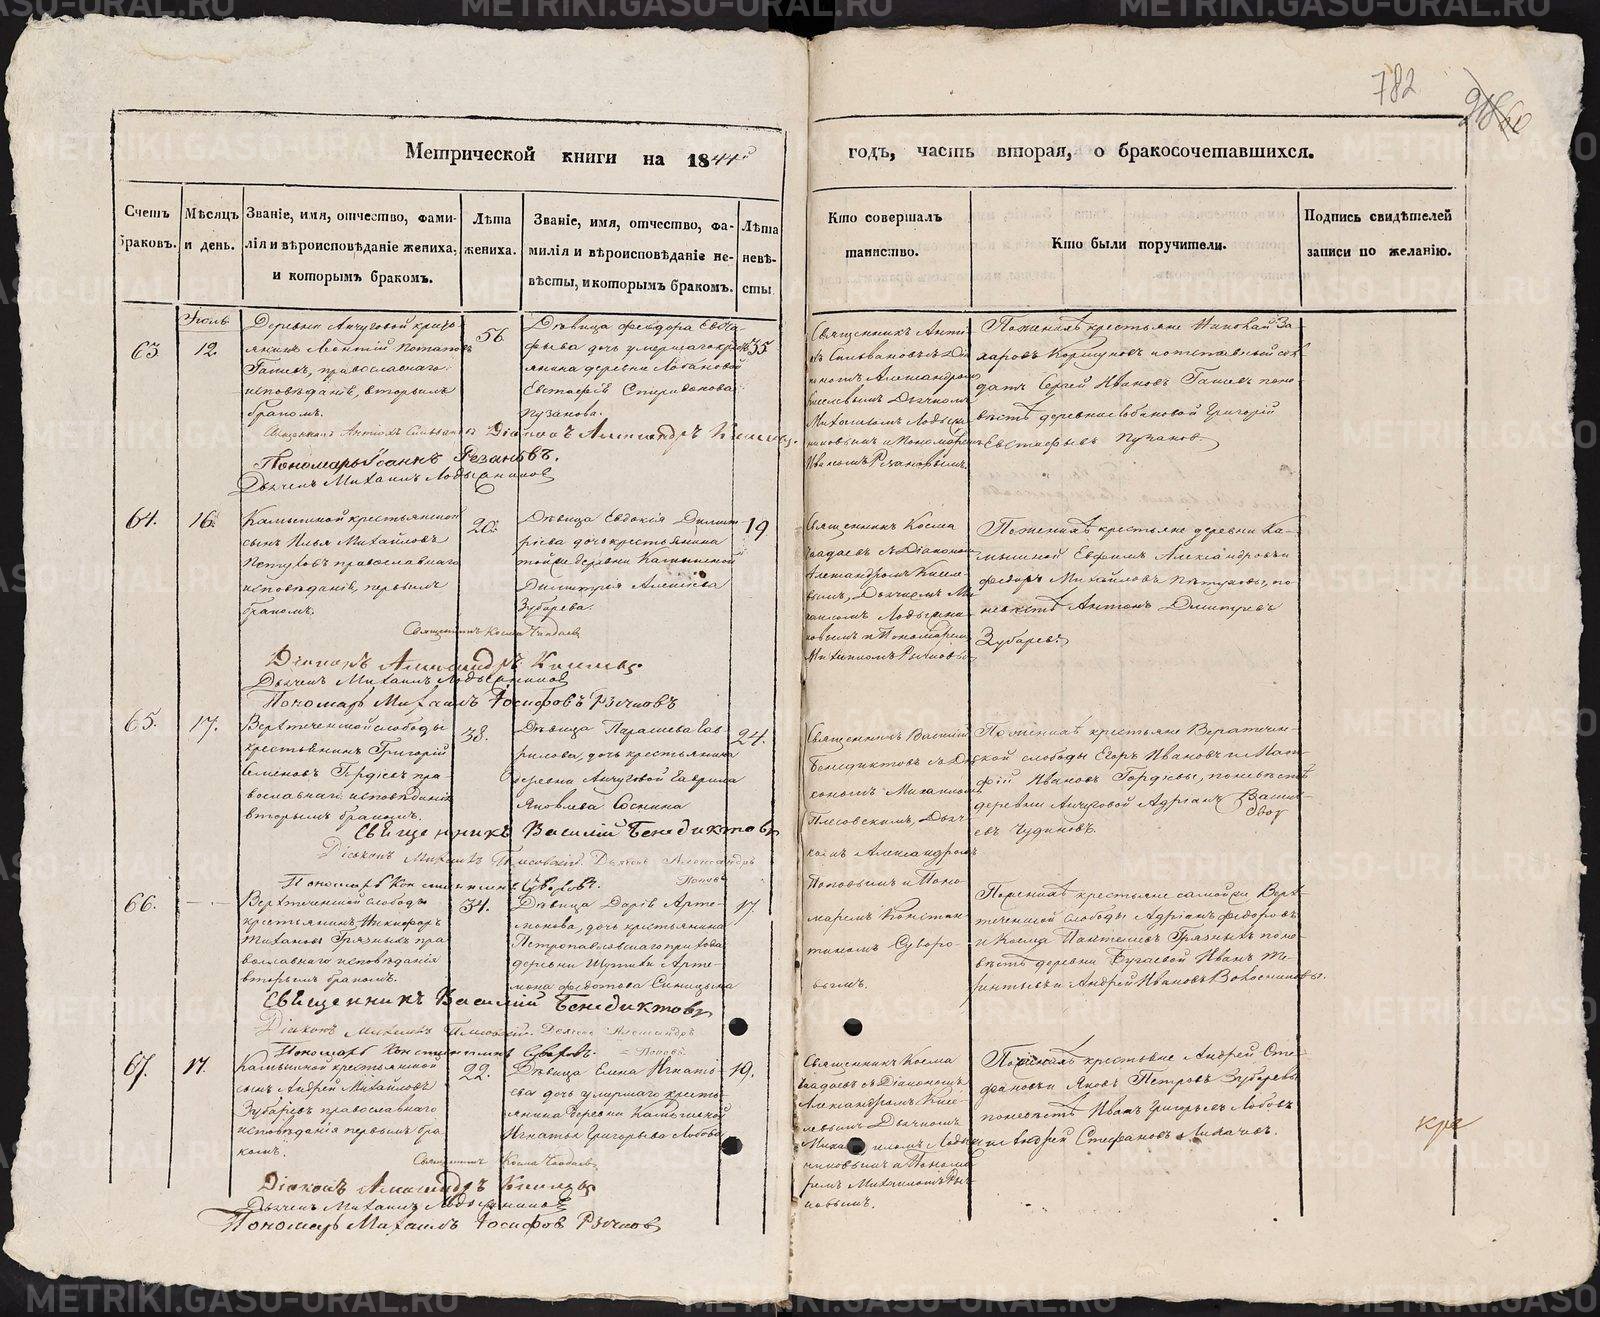 782
Метрической книги на 1844й
годъ, часть вторая, о бракосочетавшихся.
Счетъ браковъ.
Мѣсяцъ и день.
Званіе, имя, отчество, фами-
лія и вѣроисповѣданіе жениха,
и которымъ бракомъ.
Лѣта жениха.
Званіе, имя, отчество, фа-
милія и вѣроисповѣданіе не-
вѣсты, и которымъ бракомъ.
Лѣта невѣ-
сты
Кто совершалъ
таинство.
Кто были поручители.
Подпись свидѣтелей
записи по желанію.
63
Іюль
12.
Деревни Анчуговой кресть-
янинъ Леонтій Потаповъ
православнаго
исповѣданія, вторымъ
бракомъ.
56
Дѣвица Феодора Евста-
фьева дочь умершаго крест
янина деревни Лобановой
Евстафія Спиридонова
Пузанова.
35
Священникъ Анті-
охъ Сильвановъ съ Діа-
кономъ Александромъ
Киселевымъ Дьячкомъ
Михаиломъ Лодыщи-
никовымъ и Пономаремъ
Иваномъ Рѣзановымъ.
По женихѣ крестьяне Николай За-
харовъ Коршуновъ и отставный сол
датъ Сергей Ивановъ по не-
вѣстѣ деревни Лобановой Григорій
Евстафьевъ Пузановъ
Священникъ Антіохъ Сильвановъ Діаконъ Александръ Киселевъ.
Пономарь Іоаннъ Рѣзановъ.
Дьячекъ Михаилъ
64.
16.
Камышной крестьянской
сынъ Илья Михайловъ
Пѣтуховъ православнаго
исповѣданія, первымъ
бракомъ.
20.
Дѣвица Евдокія Димит
ріева дочь крестьянина
той же деревни Камышной
Димитрія Алексѣева
Зубарева.
19
Священникъ Косма
съ Діакономъ
Александромъ Кисе-
вымъ, Дьячкомъ Ми
хаиломъ
и Пономаремъ
Михаиломъ
По женихѣ крестьяне деревни Ка-
мышной Евфимъ Александровъ и
Федоръ Михайловъ Пѣтуховы, по
невѣстѣ Антонъ Дмитріевъ
Зубаревъ
Священникъ Косма
Діаконъ Александръ Киселевъ.
Дьячекъ Михаилъ
Пономарь Михаилъ Іосифовъ
65.
17.
Верхтеченской слободы
крестьянинъ Григорій
Семеновъ Гордѣевъ пра-
вославнаго исповѣданія
вторымъ бракомъ.
38.
Дѣвица Параскева Гав
рилова, дочь крестьянина
деревни Анчуговой Гаврила
Яковлева Соснина
24.
Священникъ Василій
Бенедиктовъ съ Діа-
кономъ Михаиломъ
Плисовскимъ, Дьяч-
комъ Александромъ
Поповымъ и Поно-
маремъ Констан-
тиномъ Суворо-
вымъ.
По женихѣ крестьяне Верхтечен-
ской слободы Егоръ Ивановъ и Мат-
фій Ивановъ Гордѣевы, по невѣстѣ
деревни Анчуговой Адріанъ
Чудиновъ.
Священникъ Василій Бенедиктовъ
Діаконъ Михаилъ Плисовскій. Дьячекъ Александръ
Поповъ
Пономарь Константинъ Суворовъ.
66.
Верхтеченской слободы
крестьянинъ Никифоръ
Грязныхъ пра
вославнаго исповѣданія
вторымъ бракомъ.
34.
Дѣвица Дарія Арте-
монова, дочь крестьянина
Петропавловскаго прихода
деревни Шутихи Арте-
мона Федотова Синицына
17.
По женихѣ крестьяне самой же Верх
теченской слободы Адріанъ Федоровъ
и Косма Пантелеевъ Грязныхъ по не-
вѣстѣ деревни Бугаевой Иванъ Те-
рентьевъ и Андрей Ивановъ
Священникъ Василій Бенедиктовъ
Діаконъ Михаилъ Плисовскій. Дьячекъ Александръ
Пономарь Константинъ Суворовъ. Поповъ.
67.
17.
Камышной крестьянской
сынъ Андрей Михайловъ
Зубаревъ православнаго
исповѣданія первымъ бра
комъ.
22.
Дѣвица Елена Игнатье-
ва дочь умершаго кресть-
янина деревни Камышной
Игнатья Григорьева
19.
Священникъ Косма
съ Діакономъ
Александромъ Кисе-
левымъ Дьячкомъ
Михаиломъ
и Понома
ремъ Михаиломъ
По женихѣ крестьяне Андрей Сте
фановъ и Яковъ Петровъ Зубаревы
по невѣстѣ Иванъ Григорьевъ
и Андрей Стефановъ
Священникъ Косма
Діаконъ Александръ Киселевъ
Дьячекъ Михаилъ
Пономарь Михаилъ Іосифовъ
METRIKI.GASU-URAL.RU